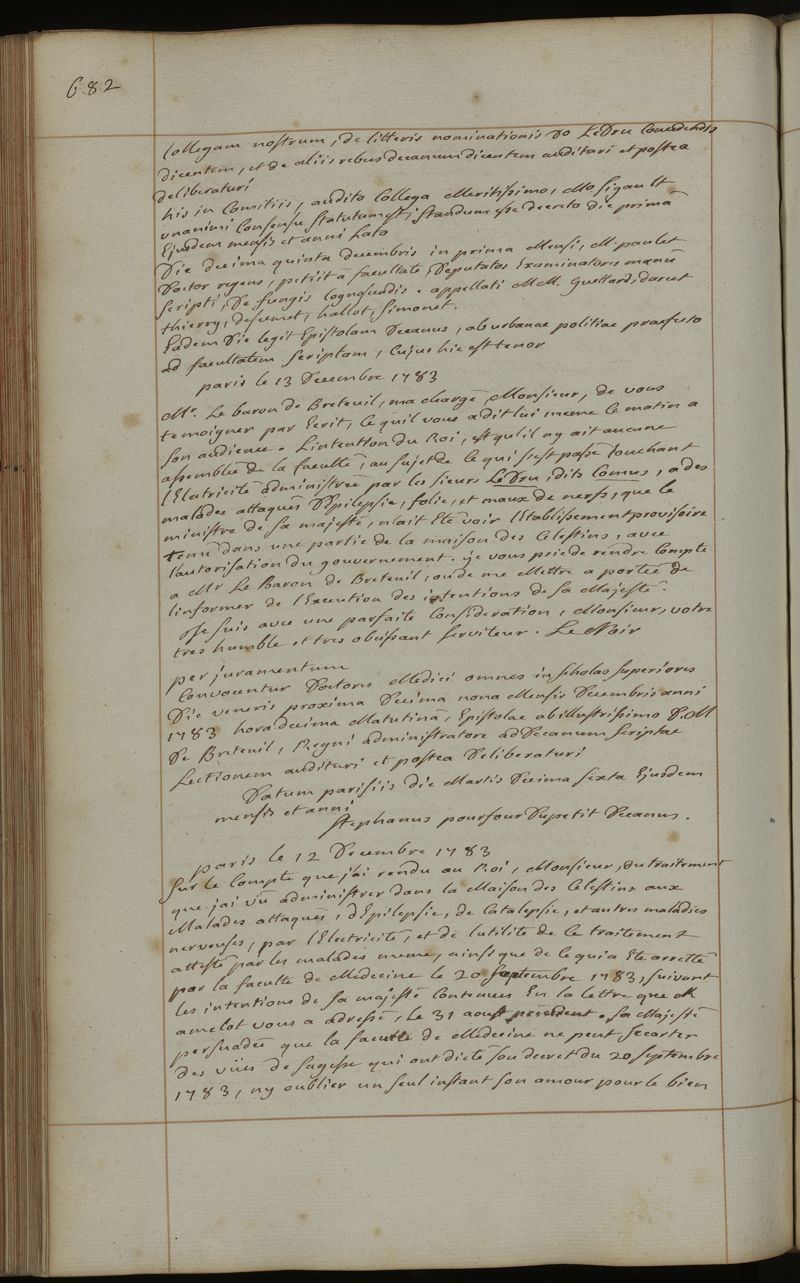 682
Collegam nostrum, de litteris nominationis Do LeDru Concedendis
dicentem, et de aliis rebus decanum dicentem auditari et postea
deliberaturi
his in Comitiis, audito Collega Meritissimo, Mo Sigault
unanimi Consensu Statutum est, standum esse decreto die prima
Ejusdem mensis et anni Lato
Die decima quinta decembris in prima Mensi, M. paulet
Doctor regens, petiit a facultate Deputatos Examinatores manu
scripti, De fungis Cognoscendis. appellati MM. Guettard, darcet
thierry, descemet, hallot, Simonet.
Eadem Die legit Epistolam Decanus, ab urbanae politiae praefecto
ad facultatem Scriptam, Cujus hic est tenor
paris le 13 Decembre 1783
Mr. Le baron de Breteuil, ma chargé, Monsieur, de vous
temoigner par Ecrit, le quil vous a dit lui meme le matin a
son audience. L'intention du Roi, est qu'il ny ait aucune
assemblée de la faculté, au sujet de le qui s'est passé touchant
l'Electricité administrée par les sieurs LeDru, dits Comus, a des
malades attaqués D'Epilepsie, folie, et maux de nerfs, que le
ministre de sa majesté, n'ait Eté voir l'Etablissement provisoire
tenu dans une partie de la maison des Celestins, avec
l'autorisation du gouvernement. je vous prie de rendre Compte
a Mr Le Baron de Breteuil, ou de me Mettre a portée de
l'informer de l'Execution des intentions de sa Majesté.
Je suis avec une parfaite Consideration, Monsieur, votre
tres humble et tres obeissant serviteur. Le Noir
per juramentum
Convocentur Doctores Medici omnes in scholas superiores
Die veneris proxima Decima nona Mensis Decembris anni
1783 hora decima Matutina, Epistolae ab illustrissimo D.M
De Breteuil, Regni administratore ad Decanum Scriptae
Lectionem audituri et postea Deliberaturi
Datum parisiis die Martis Decima sexta Ejusdem
mensis et anni
Stephanus pourfour Dupetit Decanus.
paris le 12 Decembre 1783
Sur le Compte que j'ai rendu au Roi, Monsieur, du traitement
que j'ai vû administrer dans la Maison des Celestins aux
Malades attaqués, d'Epilepsie, de Catalepsie, et autres maladies
nerveuses, par l'Electricité, et de l'utilité de le traitement
attesté par les malades meme, ainsi que de le qui a Eté arretté
par la faculté de Medecine le 20 Septembre 1783, suivant
les intentions de sa majesté Contenues En la lettre que M
amelot vous a adressé, Le 31 aoust precedent. Sa Majesté
persuadée que la faculté de Medecine ne peut s'ecarter
des vües de sagesse qui ont dicté son decret du 20 Septembre
1783, ny oublier un seul instant son amour pour le bien